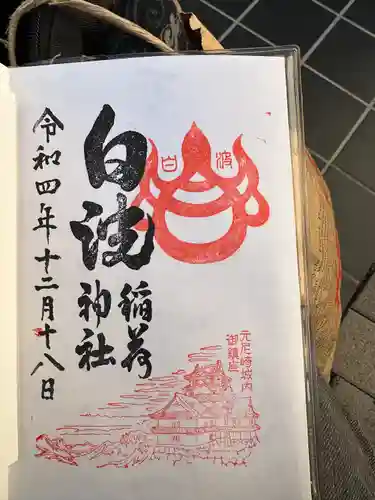 白波
稲荷
神社
令和四年十二月十八日
白波
元尼崎城内
御鎮座